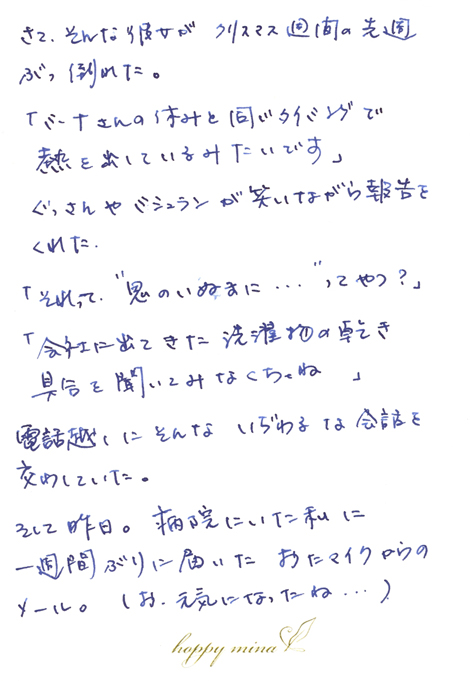 さて、そんな彼女が クリスマス週間の先週
ぶっ倒れた。
「バーナさんの休みと同じタイミングで
熱を出しているみたいです」
ぐっさんやミシュランが笑いながら報告を
くれた。
「それって、“鬼のいぬまに・・・”ってやつ？」
「会社に出てきた洗濯物の乾き
具合を聞いてみなくちゃね 」
電話越しにそんな いぢわるな会話を
交わしていた。
そして昨日。病院にいた私に
一週間ぶりに届いた おたマイクからの
メール。（お、元気になったね・・・）
happy mina